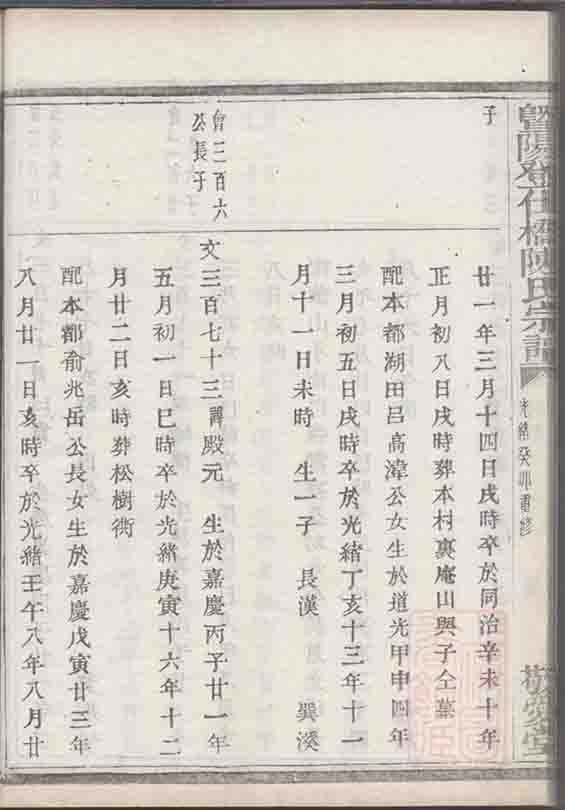 暨陽登仕橋陳氏宗譜
光緒癸卯重修
子
廿一年三月十四日戌時卒於同治辛未十年
正月初八日戌時葬本村裏庵山與子仝墓
配本都湖田呂高漳公女生於道光甲申四年
三月初五日戌時卒於光緒丁亥十三年十一
月十一日未時 生一子 長漢 巽溪
會三百六
公長子
文三百七十三諱殿元 生於嘉慶丙子廿一年
五月初一日巳時卒於光緒庚寅十六年十二
月廿二日亥時葬松樹衖
配本都俞兆岳公長女生於嘉慶戊寅廿三年
八月廿一日亥時卒於光緒壬午八年八月廿